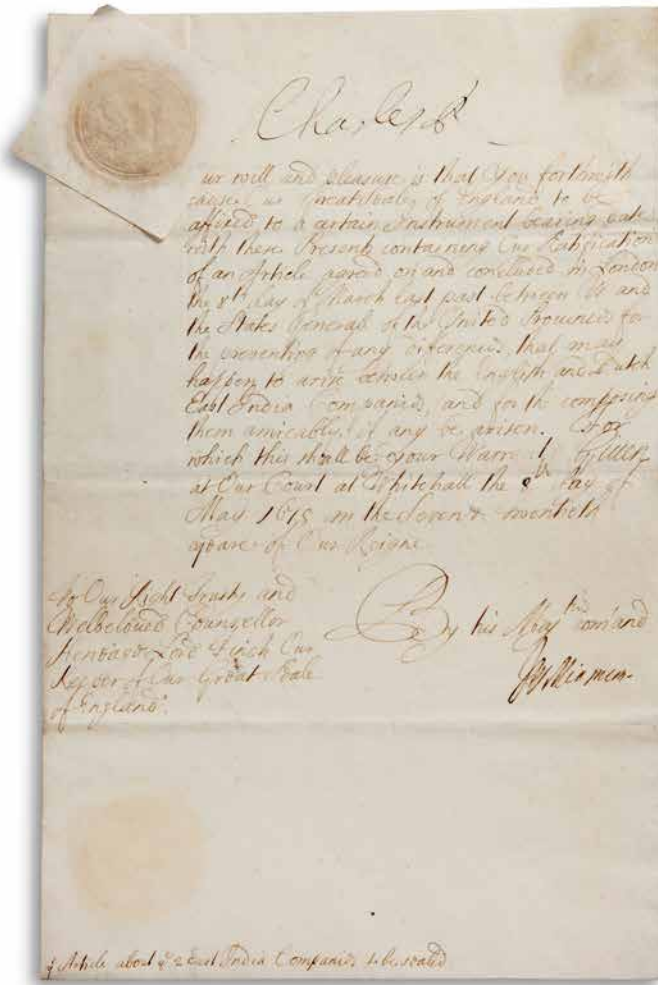 Charles R
ur will and pleasure is that You forthwith
cause our Great Seale of England to be
affixed to a certain Instrument bearing date
with these Presents containing Our Ratification
of an Article agreed on and concluded in London
the 8th day of March last past between Us and
the States Generall of the United Provinces for
the preventing of any differences that may
happen to arise between the English and Dutch
East India Companies, and for the composing
them amicably, if any be arisen. For
which this shall be your Warrant. Given
at Our Court at Whitehall the 9th day of
May 1675 in the Seven & twentieth
yeare of Our Reigne
To Our Right Trusty and
Welbeloved Counsellor
Heneage Lord Finch Our
Keeper of Our Great Seale
of England.
By his Majties comand
J Williamson
ye Article about ye 2 East India Companies to be sealed